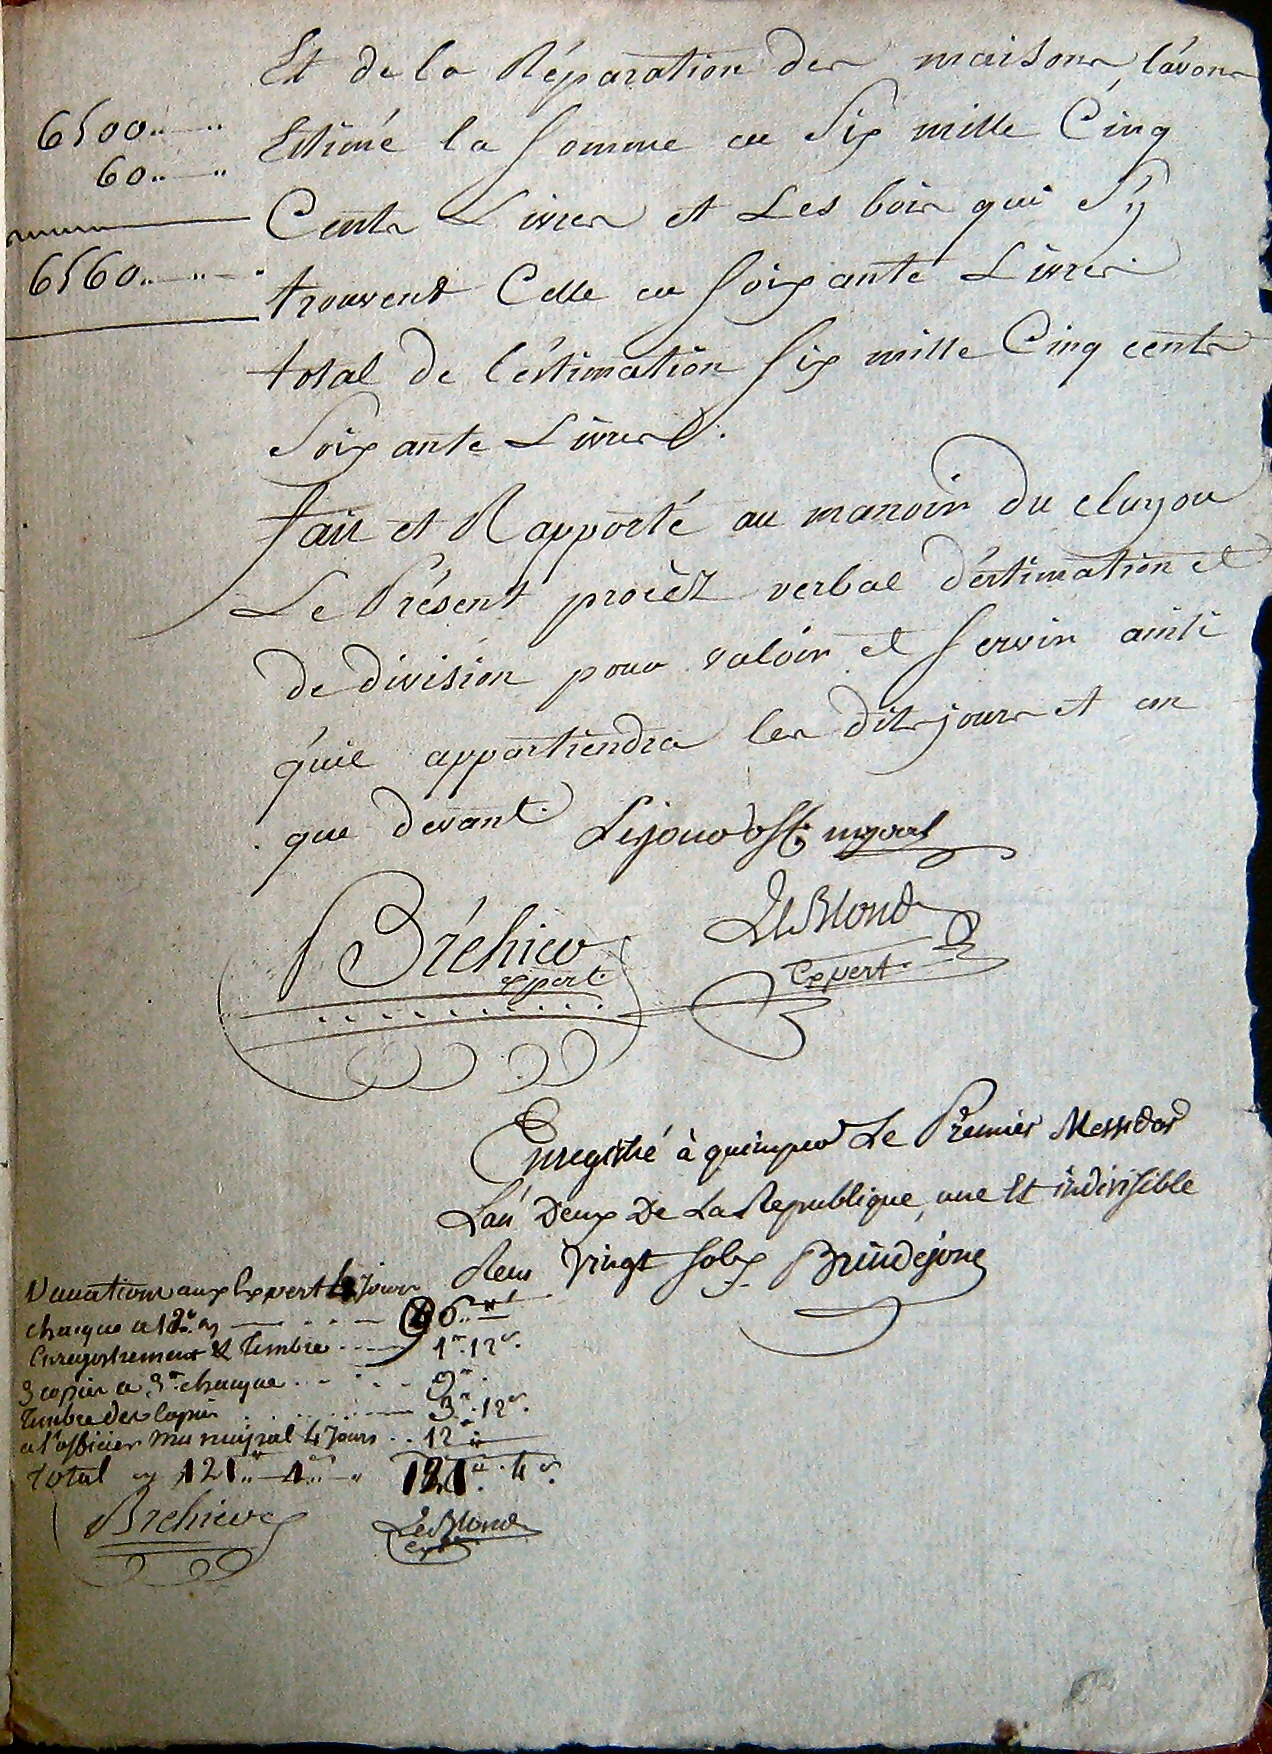 Et de la Réparation des maisons, l'avons
6500..—..
Estimé la Somme de Six mille Cinq
60..—..
Cents Livres et Les bois qui S'y
6560..—..—.
trouvent Celle de Soixante Livres
total de l'éstimation Six mille Cinq cents
Soixante Livres.
Fait et Rapporté au manoir du cluyou
Le Présent procèz verbal d'éstimation et
de division pour valoir et Servir ainsi
qu'il appartiendra les dits jours et an
que devant.
Bréhier
expert
LeBlond
Expert.
Enregistré à quimper Le Premier Messidor
L'an Deux De La Republique, une Et indivisible
Reçu Vingt Sols Brindejonc
Vacations aux Expert 4 Jours
chacque a 12tt cy — 96tt
Enregistrement & Timbre .... 1tt.12s.
3 copies a 3tt chacque ... 9tt.
Timbre des Copies ... 3tt.12s.
a l'officier municipal 4 Jours .. 12tt
total cy 121..—4..—.. 121tt.4s.
Brehier
LeBlond
exp